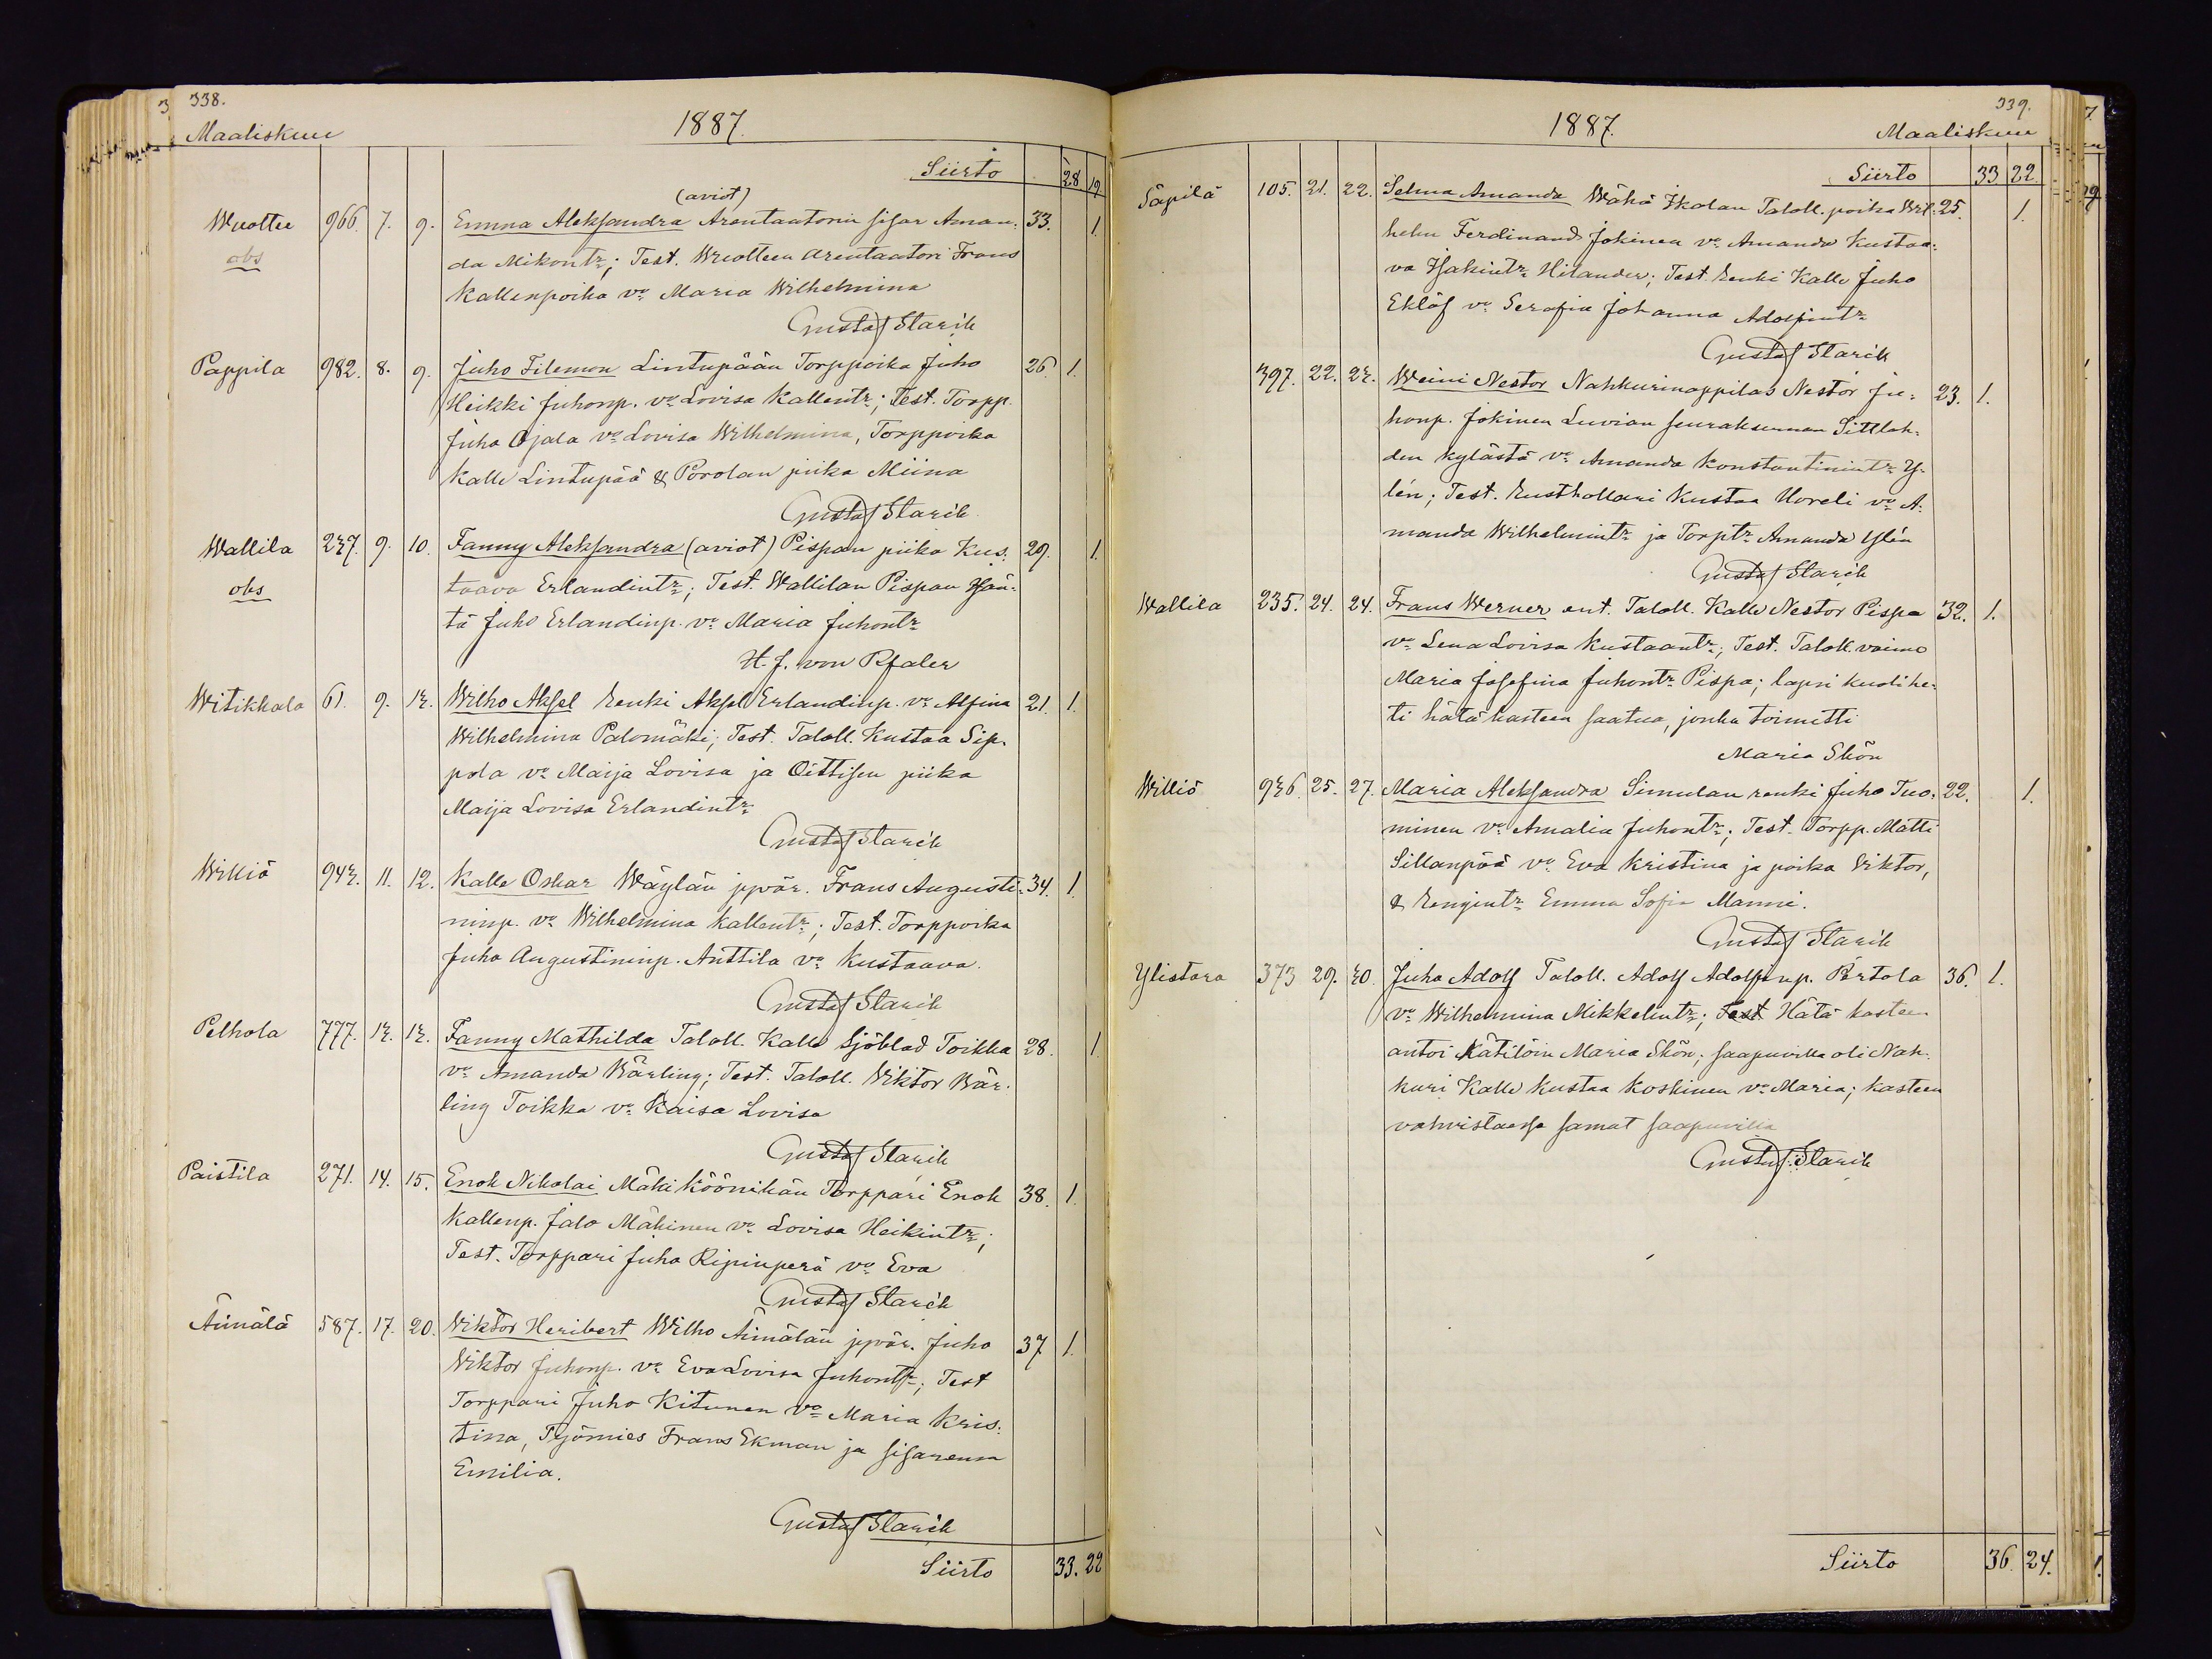 338.
Maaliskuu
1887.
Siirto 28 19
(aviot)
Wuottee 966. 7. 9. Emma Aleksandra Arentaatorin sisar Aman- 33. 1.
obs da Mikontr; Test. Wuotteen arentaatori Frans
Kallenpoika vo Maria Wilhelmina
Gustaf Starik
Pappila 982. 8. 9. Juho Filemon Lintupään Torppoika Juho 26. 1.
Heikki Juhonp. vo Lovisa Kallentr; Test. Torpp.
Juha Ojala vo Lovisa Wilhelmina, Torppoika
Kalle Lintupää & Porolan piika Miina
Gustaf Starik
Wallila 237. 9. 10. Fanny Aleksandra (aviot) Pispan piika Kus- 29. 1.
obs taava Erlandintr; Test. Wallilan Pispan Isän-
tä Juho Erlandinp. vo Maria Juhontr
H. J. von Pfaler
Witikkala 61. 9. 13. Wilho Aksel Renki Aksel Erlandinp. vo Alfina 21. 1.
Wilhelmina Palomäki; Test. Taloll. Kustaa Sip-
pola vo Maija Lovisa ja Oittisen piika
Maija Lovisa Erlandintr
Gustaf Starik
Williö 943. 11. 12. Kalle Oskar Wäylän jpvär. Frans Augusti- 34. 1.
ninp. vo Wilhelmina Kallentr; Test. Torppoika
Juho Augustininp. Anttila vo Kustaava.
Gustaf Starik
Pelhola 777. 13. 13. Fanny Mathilda Taloll. Kalle Sjöblad Toikka 28. 1
vo Amanda Wärling; Test. Taloll. Viktor Wär-
ling Toikka vo Kaisa Lovisa
Gustaf Starik
Paistila 271. 14. 15. Enok Nikolai Mäki Köönikän Torppari Enok 38. 1.
Kallenp. Jalo Mäkinen vo Lovisa Heikintr;
Test. Torppari Juha Ripinperä vo Eva
Gustaf Starik
Äimälä 587. 17. 20. Viktor Heribert Wilho Äimälän jpvär. Juho 37 1.
Viktor Juhonp. vo Eva Lovisa Juhontr; Test
Torppari Juho Kitunen vo Maria Kris-
tina, Työmies Frans Ekman ja sisarensa
Emilia.
Gustaf Starik
Siirto 33. 22
339.
1887.
Maaliskuu
Siirto 33 22.
Säpilä 105. 21. 22. Selma Amanda Wähä Ikolan Taloll. poika Wil- 25. 1.
helm Ferdinand Jokinen vo Amanda Kustaa-
va Isakintr Hilander; Test. Renki Kalle Juho
Eklöf vo Serafia Johanna Adolfintr
Gustaf Starik
397. 22. 23. Weini Nestor Nahkurinoppilas Nestor Ju- 23. 1.
honp. Jokinen Luvian seurakunnan Sittlah-
den kylästä vo Amanda Konstantinintr Y-
lén; Test. Rusthollari Kustaa Uoreli vo A-
manda Wilhelmintr ja Torptr Amanda Ylén
Gustaf Starik
Wallila 235. 24. 24. Frans Werner ent. Taloll. Kalle Nestor Pispa 32. 1.
vo Lena Lovisa Kustaantr; Test. Taloll. vaimo
Maria Josefina Juhontr Pispa; lapsi kuoli he-
ti hätäkasteen saatua, jonka toimitti
Maria Skön
Williö 936. 25. 27. Maria Aleksandra Simulan renki Juho Tuo- 22. 1.
minen vo Amalia Juhontr; Test. Torpp. Matti
Sillanpää vo Eva Kristina ja poika Viktor,
& Rengintr Emma Sofia Manni.
Gustaf Starik
Ylistaro 373 29. 30. Juha Adolf Taloll. Adolf Adolfinp. Pärtola 36. 1.
vo Wilhelmina Mikkelintr; Test Hätä kasteen
antoi Kätilöin Maria Skön; saapuvilla oli Nah-
kuri Kalle Kustaa Koskinen vo Maria; kasteen
vahvistaessa samat saapuvilla
Gustaf Starik
Siirto 36. 24.